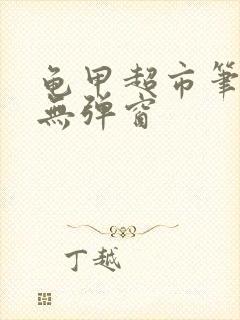 龟甲超市筆
無弹窗
丁越